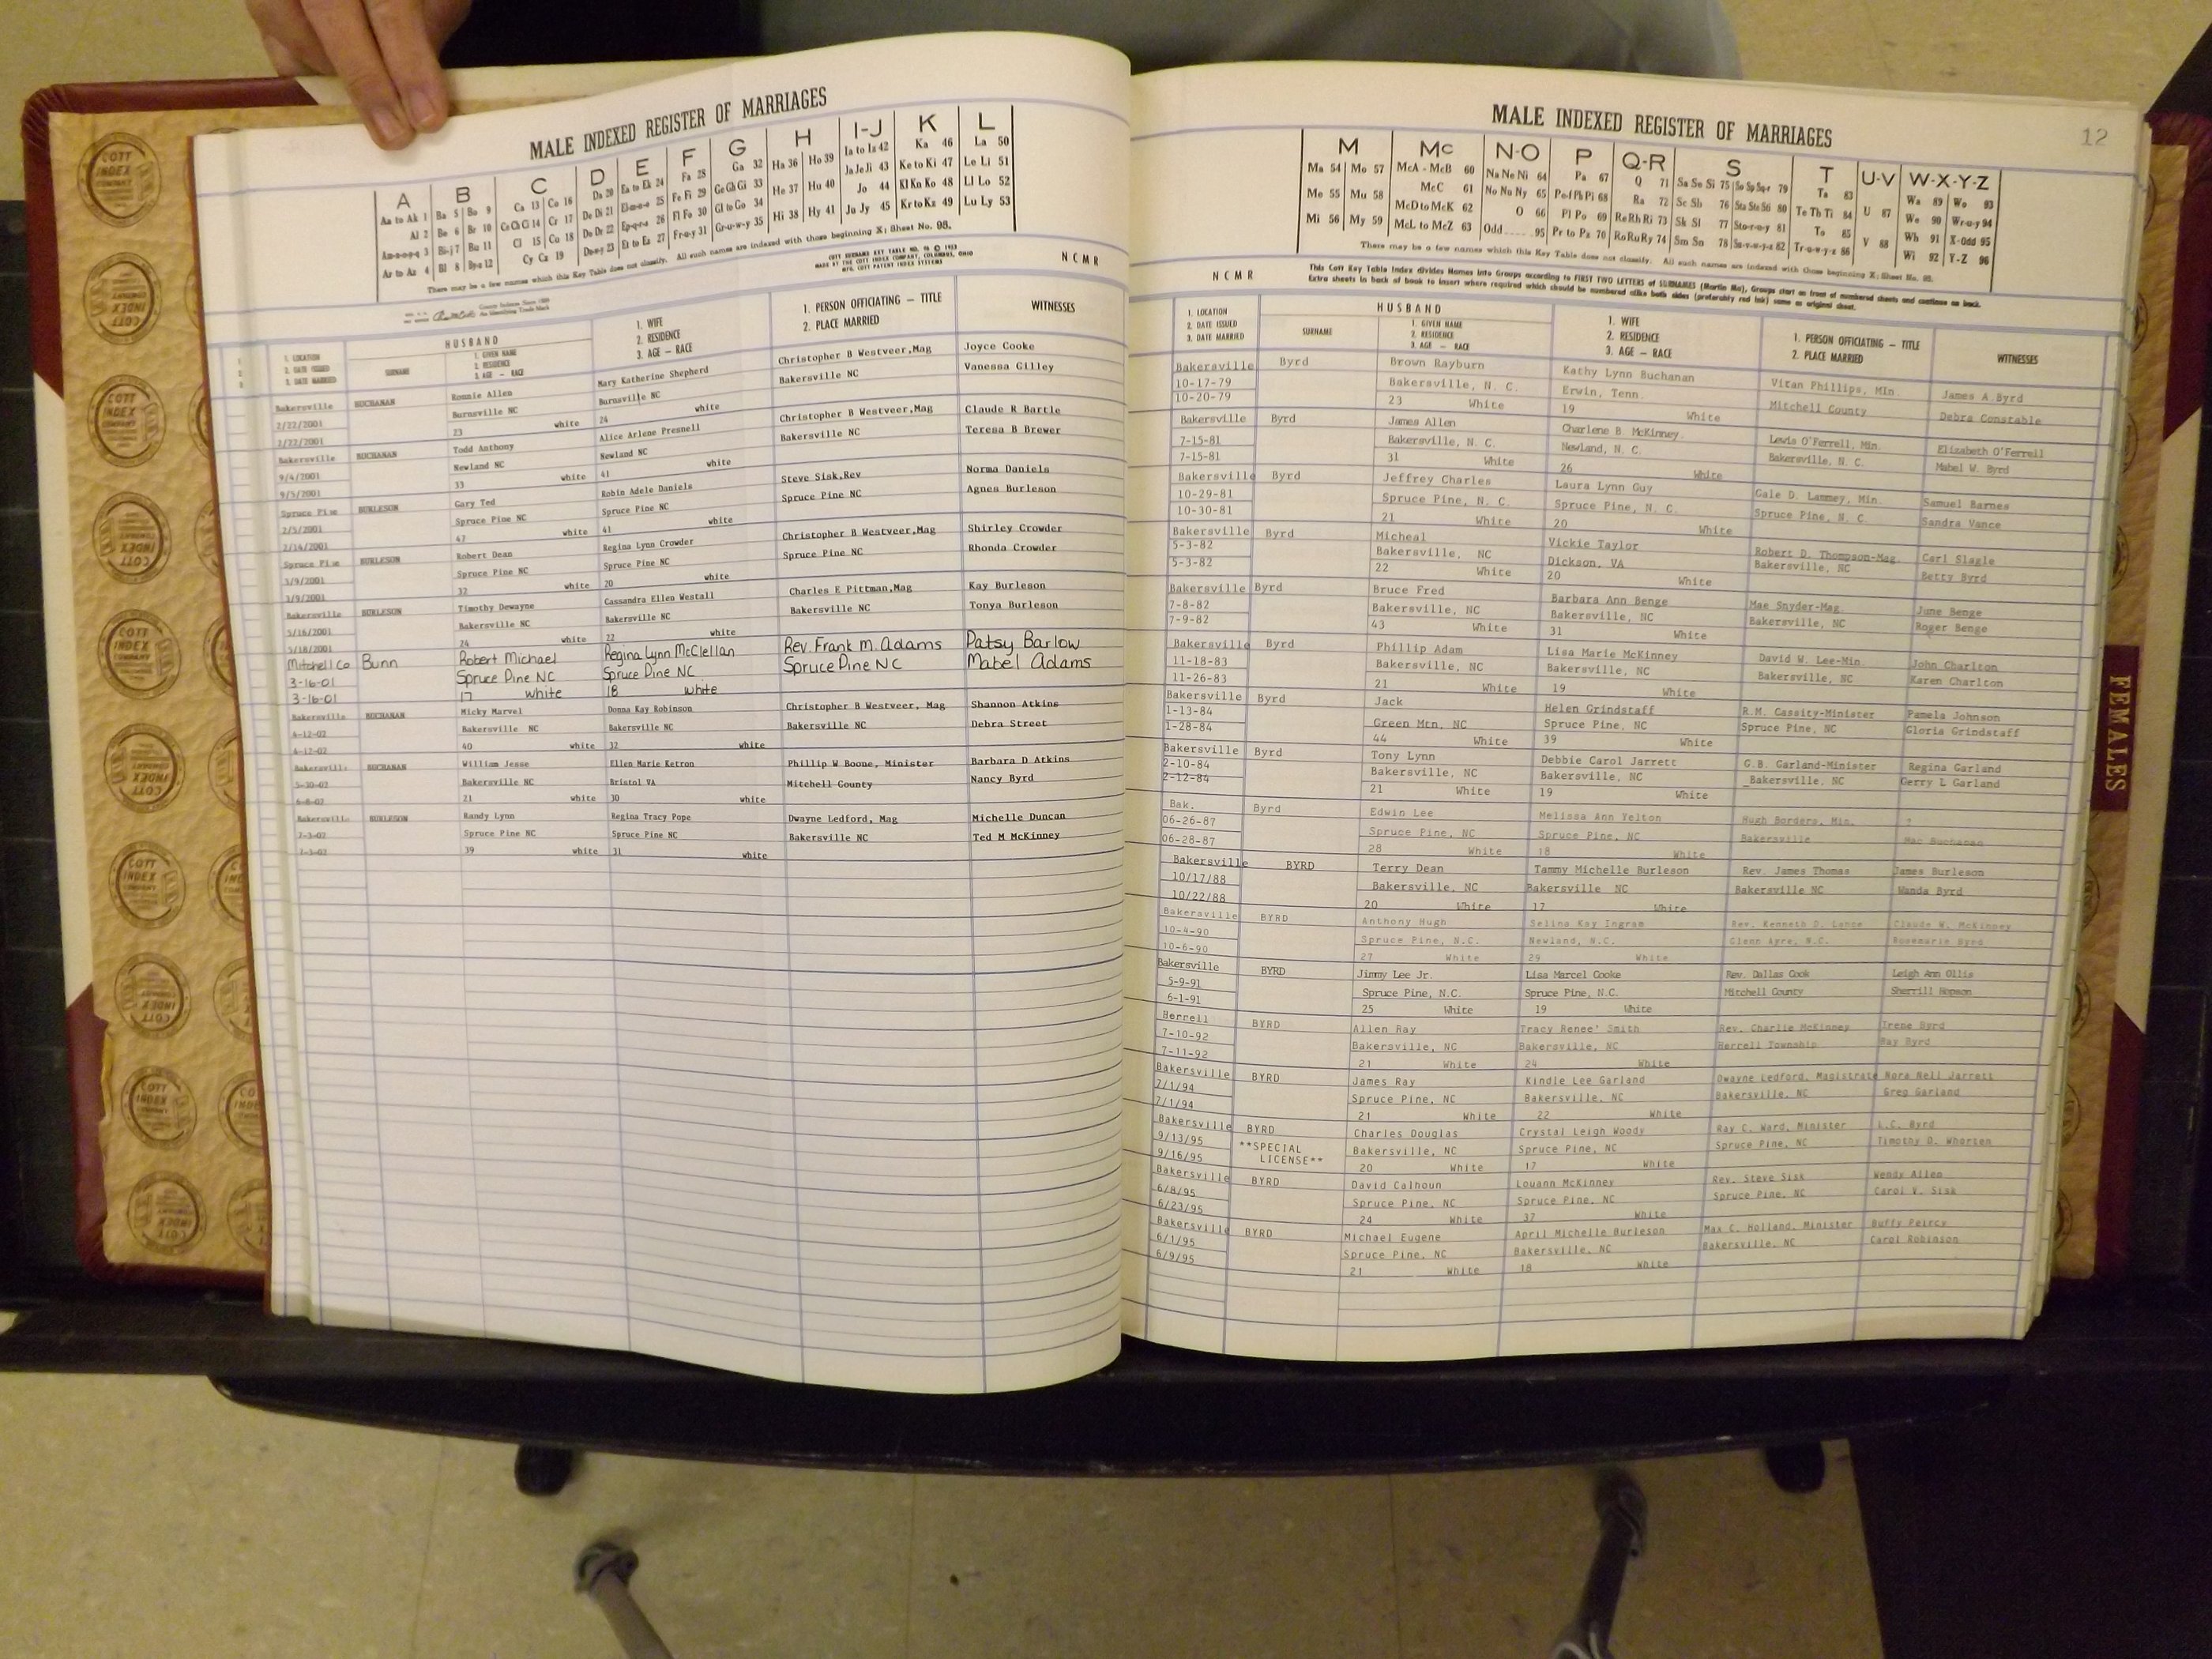 MALE INDEXED REGISTER OF MARRIAGES
A B C D E F G H I-J K L
Aa to Ak 1 Ba 5 Bo 9 Ca 13 Co 16 Da 20 Ea to Ek 24 Fa 28 Ga 32 Ha 36 Ho 39 Ia to Iz 42 Ka 46 La 50
Al 2 Be 6 Br 10 Ce Ch Ci 14 Cr 17 De Di 21 El-m-n-o 25 Fe Fi 29 Ge Gh Gi 33 He 37 Hu 40 Ja Je Ji 43 Ke to Ki 47 Le Li 51
Am-n-o-p-q 3 Bi-j 7 Bu 11 Cl 15 Cu 18 Do Dr 22 Ep-q-r-s 26 Fl Fo 30 Gl to Go 34 Hi 38 Hy 41 Jo 44 Kl Kn Ko 48 Ll Lo 52
Ar to Az 4 Bl 8 By-z 12 Cy Cz 19 Du-y 23 Et to Ez 27 Fr-u-y 31 Gr-u-w-y 35 Ju Jy 45 Kr to Kz 49 Lu Ly 53
There may be a few names which this Key Table does not classify. All such names are indexed with those beginning X; Sheet No. 95.
COTT SURNAME KEY TABLE NO. 96 © 1953
MADE BY THE COTT INDEX COMPANY, COLUMBUS, OHIO
MFG. COTT PATENT INDEX SYSTEMS
NCMR
An Identifying Trade Mark
1. LOCATION
2. DATE ISSUED
3. DATE MARRIED
HUSBAND
SURNAME
1. GIVEN NAME
2. RESIDENCE
3. AGE — RACE
1. WIFE
2. RESIDENCE
3. AGE — RACE
1. PERSON OFFICIATING — TITLE
2. PLACE MARRIED
WITNESSES
Bakersville BUCHANAN Ronnie Allen Mary Katherine Shepherd Christopher B Westveer,Mag Joyce Cooke
2/22/2001 Burnsville NC Burnsville NC Bakersville NC Vanessa Gilley
2/22/2001 23 white 24 white
Bakersville BUCHANAN Todd Anthony Alice Arlene Presnell Christopher B Westveer,Mag Claude R Bartle
9/4/2001 Newland NC Newland NC Bakersville NC Teresa B Brewer
9/5/2001 33 white 41 white
Spruce Pine BURLESON Gary Ted Robin Adele Daniels Steve Sisk,Rev Norma Daniels
2/5/2001 Spruce Pine NC Spruce Pine NC Spruce Pine NC Agnes Burleson
2/14/2001 47 white 41 white
Spruce Pine BURLESON Robert Dean Regina Lynn Crowder Christopher B Westveer,Mag Shirley Crowder
3/9/2001 Spruce Pine NC Spruce Pine NC Spruce Pine NC Rhonda Crowder
3/9/2001 32 white 20 white
Bakersville BURLESON Timothy Dewayne Cassandra Ellen Westall Charles E Pittman,Mag Kay Burleson
5/16/2001 Bakersville NC Bakersville NC Bakersville NC Tonya Burleson
5/18/2001 24 white 22 white
Mitchell Co Bunn Robert Michael Regina Lynn McClellan Rev. Frank M. Adams Patsy Barlow
3-16-01 Spruce Pine NC Spruce Pine NC Spruce Pine NC Mabel Adams
3-16-01 17 white 18 white
Bakersville BUCHANAN Micky Marvel Donna Kay Robinson Christopher B Westveer, Mag Shannon Atkins
4-12-02 Bakersville NC Bakersville NC Bakersville NC Debra Street
4-12-02 40 white 32 white
Bakersville BUCHANAN William Jesse Ellen Marie Ketron Phillip W Boone, Minister Barbara D Atkins
5-30-02 Bakersville NC Bristol VA Mitchell County Nancy Byrd
6-8-02 21 white 30 white
Bakersville BURLESON Randy Lynn Regina Tracy Pope Dwayne Ledford, Mag Michelle Duncan
7-3-02 Spruce Pine NC Spruce Pine NC Bakersville NC Ted M McKinney
7-3-02 39 white 31 white
MALE INDEXED REGISTER OF MARRIAGES
12
M Mc N-O P Q-R S T U-V W-X-Y-Z
Ma 54 Mo 57 McA - McB 60 Na Ne Ni 64 Pa 67 Q 71 Sa Se Si 75 So Sp Sq-r 79 Ta 83 U 87 Wa 89 Wo 93
Me 55 Mu 58 McC 61 No Nu Ny 65 Pe-f Ph Pi 68 Ra 72 Sc Sh 76 Sta Ste Sti 80 Te Th Ti 84 V 88 We 90 Wr-u-y 94
Mi 56 My 59 McD to McK 62 O 66 Pl Po 69 Re Rh Ri 73 Sk Sl 77 Sto-r-u-y 81 To 85 Wh 91 X-Odd 95
McL to McZ 63 Odd 95 Pr to Pz 70 Ro Ru Ry 74 Sm Sn 78 Su-v-w-y-z 82 Tr-u-w-y-z 86 Wi 92 Y-Z 96
There may be a few names which this Key Table does not classify. All such names are indexed with those beginning X; Sheet No. 95.
NCMR
This Cott Key Table Index divides Names into Groups according to FIRST TWO LETTERS of SURNAMES (Martin Ma), Groups start on front of numbered sheets and continue on back.
Extra sheets in back of book to insert where required which should be numbered alike both sides (preferably red ink) same as original sheet.
1. LOCATION
2. DATE ISSUED
3. DATE MARRIED
HUSBAND
SURNAME
1. GIVEN NAME
2. RESIDENCE
3. AGE — RACE
1. WIFE
2. RESIDENCE
3. AGE — RACE
1. PERSON OFFICIATING — TITLE
2. PLACE MARRIED
WITNESSES
Bakersville Byrd Brown Rayburn Kathy Lynn Buchanan Vitan Phillips, Min. James A.Byrd
10-17-79 Bakersville, N. C. Erwin, Tenn. Mitchell County Debra Constable
10-20-79 23 White 19 White
Bakersville Byrd James Allen Charlene B. McKinney Lewis O'Ferrell, Min. Elizabeth O'Ferrell
7-15-81 Bakersville, N. C. Newland, N. C. Bakersville, N. C. Mabel W. Byrd
7-15-81 31 White 26 White
Bakersville Byrd Jeffrey Charles Laura Lynn Guy Gale D. Lammey, Min. Samuel Barnes
10-29-81 Spruce Pine, N. C. Spruce Pine, N. C. Spruce Pine, N. C. Sandra Vance
10-30-81 21 White 20 White
Bakersville Byrd Micheal Vickie Taylor Robert D. Thompson-Mag. Carl Slagle
5-3-82 Bakersville, NC Dickson, VA Bakersville, NC Betty Byrd
5-3-82 22 White 20 White
Bakersville Byrd Bruce Fred Barbara Ann Benge Mae Snyder-Mag. June Benge
7-8-82 Bakersville, NC Bakersville, NC Bakersville, NC Roger Benge
7-9-82 43 White 31 White
Bakersville Byrd Phillip Adam Lisa Marie McKinney David W. Lee-Min. John Charlton
11-18-83 Bakersville, NC Bakersville, NC Bakersville, NC Karen Charlton
11-26-83 21 White 19 White
Bakersville Byrd Jack Helen Grindstaff R.M. Cassity-Minister Pamela Johnson
1-13-84 Green Mtn, NC Spruce Pine, NC Spruce Pine, NC Gloria Grindstaff
1-28-84 44 White 39 White
Bakersville Byrd Tony Lynn Debbie Carol Jarrett G.B. Garland-Minister Regina Garland
2-10-84 Bakersville, NC Bakersville, NC Bakersville, NC Gerry L Garland
2-12-84 21 White 19 White
Bak. Byrd Edwin Lee Melissa Ann Yelton Hugh Borders, Min. ?
06-26-87 Spruce Pine, NC Spruce Pine, NC Bakersville Mac Buchanan
06-28-87 28 White 18 White
Bakersville BYRD Terry Dean Tammy Michelle Burleson Rev. James Thomas James Burleson
10/17/88 Bakersville, NC Bakersville NC Bakersville NC Wanda Byrd
10/22/88 20 White 17 White
Bakersville BYRD Anthony Hugh Selina Kay Ingram Rev. Kenneth D. Lance Claude W. McKinney
10-4-90 Spruce Pine, N.C. Newland, N.C. Glenn Ayre, N.C. Rosemarie Byrd
10-6-90 27 White 29 White
Bakersville BYRD Jimmy Lee Jr. Lisa Marcel Cooke Rev. Dallas Cook Leigh Ann Ollis
5-9-91 Spruce Pine, N.C. Spruce Pine, N.C. Mitchell County Sherrill Hopson
6-1-91 25 White 19 White
Herrell BYRD Allen Ray Tracy Renee' Smith Rev. Charlie McKinney Irene Byrd
7-10-92 Bakersville, NC Bakersville, NC Herrell Township Ray Byrd
7-11-92 21 White 24 White
Bakersville BYRD James Ray Kindle Lee Garland Dwayne Ledford, Magistrate Nora Nell Jarrett
7/1/94 Spruce Pine, NC Spruce Pine, NC Bakersville, NC Greg Garland
7/1/94 21 White 22 White
Bakersville BYRD Charles Douglas Crystal Leigh Woody Ray C. Ward, Minister L.C. Byrd
9/13/95 **SPECIAL Bakersville, NC Spruce Pine, NC Spruce Pine, NC Timothy D. Whorten
9/16/95 LICENSE** 20 White 17 White
Bakersville BYRD David Calhoun Louann McKinney Rev. Steve Sisk Wendy Allen
6/8/95 Spruce Pine, NC Spruce Pine, NC Spruce Pine, NC Carol V. Sisk
6/23/95 24 White 37 White
Bakersville BYRD Michael Eugene April Michelle Burleson Max C. Holland, Minister Buffy Peircy
6/1/95 Spruce Pine, NC Bakersville, NC Bakersville, NC Carol Robinson
6/9/95 21 White 18 White
FEMALES
COTT
INDEX
COMPANY